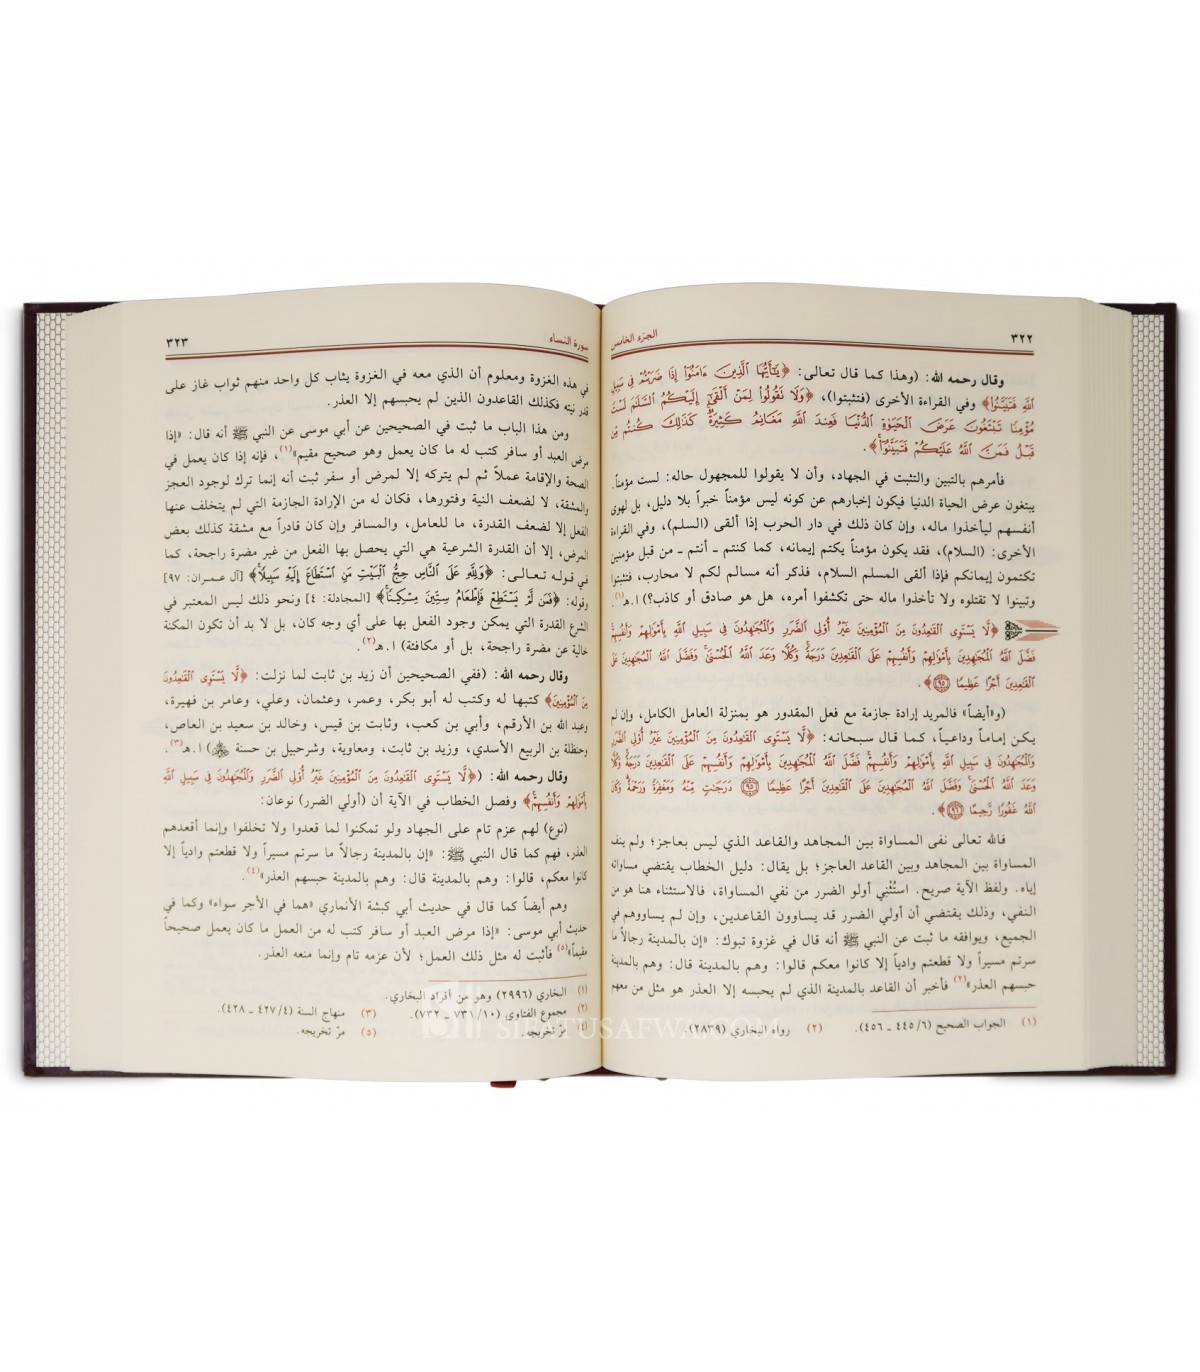 ٣٢٢
الجزء الخامس
وقال رحمه الله: (وهذا كما قال تعالى: ﴿يَٰٓأَيُّهَا ٱلَّذِينَ ءَامَنُوٓا۟ إِذَا ضَرَبْتُمْ فِى سَبِيلِ
ٱللَّهِ فَتَبَيَّنُوا۟﴾ وفي القراءة الأخرى (فتثبتوا)، ﴿وَلَا تَقُولُوا۟ لِمَنْ أَلْقَىٰٓ إِلَيْكُمُ ٱلسَّلَٰمَ لَسْتَ
مُؤْمِنًا تَبْتَغُونَ عَرَضَ ٱلْحَيَوٰةِ ٱلدُّنْيَا فَعِندَ ٱللَّهِ مَغَانِمُ كَثِيرَةٌ كَذَٰلِكَ كُنتُم مِّن
قَبْلُ فَمَنَّ ٱللَّهُ عَلَيْكُمْ فَتَبَيَّنُوٓا۟﴾.
فأمرهم بالتبين والتثبت في الجهاد، وأن لا يقولوا للمجهول حاله: لست مؤمناً.
يبتغون عرض الحياة الدنيا فيكون إخبارهم عن كونه ليس مؤمناً خبراً بلا دليل، بل لهوى
أنفسهم ليأخذوا ماله، وإن كان ذلك في دار الحرب إذا ألقى (السلم)، وفي القراءة
الأخرى: (السلام)، فقد يكون مؤمناً يكتم إيمانه، كما كنتم ـ أنتم ـ من قبل مؤمنين
تكتمون إيمانكم فإذا ألقى المسلم السلام، فذكر أنه مسالم لكم لا محارب، فتثبتوا
وتبينوا لا تقتلوه ولا تأخذوا ماله حتى تكشفوا أمره، هل هو صادق أو كاذب؟) ا.هـ(١).
﴿لَّا يَسْتَوِى ٱلْقَٰعِدُونَ مِنَ ٱلْمُؤْمِنِينَ غَيْرُ أُو۟لِى ٱلضَّرَرِ وَٱلْمُجَٰهِدُونَ فِى سَبِيلِ ٱللَّهِ بِأَمْوَٰلِهِمْ وَأَنفُسِهِمْ
فَضَّلَ ٱللَّهُ ٱلْمُجَٰهِدِينَ بِأَمْوَٰلِهِمْ وَأَنفُسِهِمْ عَلَى ٱلْقَٰعِدِينَ دَرَجَةً وَكُلًّا وَعَدَ ٱللَّهُ ٱلْحُسْنَىٰ وَفَضَّلَ ٱللَّهُ ٱلْمُجَٰهِدِينَ عَلَى
ٱلْقَٰعِدِينَ أَجْرًا عَظِيمًا ٩٥﴾.
(و«أيضاً» فالمريد إرادة جازمة مع فعل المقدور هو بمنزلة العامل الكامل، وإن لم
يكن إماماً وداعياً، كما قال سبحانه: ﴿لَّا يَسْتَوِى ٱلْقَٰعِدُونَ مِنَ ٱلْمُؤْمِنِينَ غَيْرُ أُو۟لِى ٱلضَّرَرِ
وَٱلْمُجَٰهِدُونَ فِى سَبِيلِ ٱللَّهِ بِأَمْوَٰلِهِمْ وَأَنفُسِهِمْ فَضَّلَ ٱللَّهُ ٱلْمُجَٰهِدِينَ بِأَمْوَٰلِهِمْ وَأَنفُسِهِمْ عَلَى ٱلْقَٰعِدِينَ دَرَجَةً وَكُلًّا
وَعَدَ ٱللَّهُ ٱلْحُسْنَىٰ وَفَضَّلَ ٱللَّهُ ٱلْمُجَٰهِدِينَ عَلَى ٱلْقَٰعِدِينَ أَجْرًا عَظِيمًا ٩٥ دَرَجَٰتٍ مِّنْهُ وَمَغْفِرَةً وَرَحْمَةً وَكَانَ
ٱللَّهُ غَفُورًا رَّحِيمًا ٩٦﴾.
فالله تعالى نفى المساواة بين المجاهد والقاعد الذي ليس بعاجز؛ ولم ينف
المساواة بين المجاهد وبين القاعد العاجز؛ بل يقال: دليل الخطاب يقتضي مساواته
إياه. ولفظ الآية صريح. استُثني أولو الضرر من نفي المساواة، فالاستثناء هنا هو من
النفي، وذلك يقتضي أن أولي الضرر قد يساوون القاعدين، وإن لم يساووهم في
الجميع، ويوافقه ما ثبت عن النبي ﷺ أنه قال في غزوة تبوك: «إن بالمدينة رجالاً ما
سرتم مسيراً ولا قطعتم وادياً إلا كانوا معكم قالوا: وهم بالمدينة قال: وهم بالمدينة
حبسهم العذر»(٢) فأخبر أن القاعد بالمدينة الذي لم يحبسه إلا العذر هو مثل من معهم
(١) الجواب الصحيح (٦/ ٤٤٥ ـ ٤٥٦). (٢) رواه البخاري (٢٨٣٩).
سورة النساء
٣٢٣
في هذه الغزوة ومعلوم أن الذي معه في الغزوة يثاب كل واحد منهم ثواب غاز على
قدر نيته فكذلك القاعدون الذين لم يحبسهم إلا العذر.
ومن هذا الباب ما ثبت في الصحيحين عن أبي موسى عن النبي ﷺ أنه قال: «إذا
مرض العبد أو سافر كتب له ما كان يعمل وهو صحيح مقيم»(١)، فإنه إذا كان يعمل في
الصحة والإقامة عملاً ثم لم يتركه إلا لمرض أو سفر ثبت أنه إنما ترك لوجود العجز
والمشقة، لا لضعف النية وفتورها، فكان له من الإرادة الجازمة التي لم يتخلف عنها
الفعل إلا لضعف القدرة، ما للعامل، والمسافر وإن كان قادراً مع مشقة كذلك بعض
المرض، إلا أن القدرة الشرعية هي التي يحصل بها الفعل من غير مضرة راجحة، كما
في قوله تعالى: ﴿وَلِلَّهِ عَلَى ٱلنَّاسِ حِجُّ ٱلْبَيْتِ مَنِ ٱسْتَطَاعَ إِلَيْهِ سَبِيلًا﴾ [آل عمران: ٩٧]
وقوله: ﴿فَمَن لَّمْ يَسْتَطِعْ فَإِطْعَامُ سِتِّينَ مِسْكِينًا﴾ [المجادلة: ٤] ونحو ذلك ليس المعتبر في
الشرع القدرة التي يمكن وجود الفعل بها على أي وجه كان، بل لا بد أن تكون المكنة
خالية عن مضرة راجحة، بل أو مكافئة) ا.هـ(٢).
وقال رحمه الله: (ففي الصحيحين أن زيد بن ثابت لما نزلت: ﴿لَّا يَسْتَوِى ٱلْقَٰعِدُونَ
مِنَ ٱلْمُؤْمِنِينَ﴾ كتبها له وكتب له أبو بكر، وعمر، وعثمان، وعلي، وعامر بن فهيرة،
وعبد الله بن الأرقم، وأبي بن كعب، وثابت بن قيس، وخالد بن سعيد بن العاص،
وحنظلة بن الربيع الأسدي، وزيد بن ثابت، ومعاوية، وشرحبيل بن حسنة ﷺ) ا.هـ(٣).
وقال رحمه الله: (﴿لَّا يَسْتَوِى ٱلْقَٰعِدُونَ مِنَ ٱلْمُؤْمِنِينَ غَيْرُ أُو۟لِى ٱلضَّرَرِ وَٱلْمُجَٰهِدُونَ فِى سَبِيلِ ٱللَّهِ
بِأَمْوَٰلِهِمْ وَأَنفُسِهِمْ﴾ وفصل الخطاب في الآية أن (أولي الضرر) نوعان:
(نوع) لهم عزم تام على الجهاد ولو تمكنوا لما قعدوا ولا تخلفوا وإنما أقعدهم
العذر، فهم كما قال النبي ﷺ: «إن بالمدينة رجالاً ما سرتم مسيراً ولا قطعتم وادياً إلا
كانوا معكم، قالوا: وهم بالمدينة قال: وهم بالمدينة حبسهم العذر»(٤).
وهم أيضاً كما قال في حديث أبي كبشة الأنماري «هما في الأجر سواء» وكما في
حديث أبي موسى: «إذا مرض العبد أو سافر كتب له من العمل ما كان يعمل صحيحاً
مقيماً»(٥) فأثبت له مثل ذلك العمل؛ لأن عزمه تام وإنما منعه العذر.
(١) البخاري (٢٩٩٦) وهو من أفراد البخاري.
(٢) مجموع الفتاوى (١٠/ ٧٣١ ـ ٧٣٢). (٣) منهاج السنة (٤/ ٤٢٧ ـ ٤٢٨).
(٤) مرّ تخريجه. (٥) مرّ تخريجه.
SIFATUSAFWA.COM